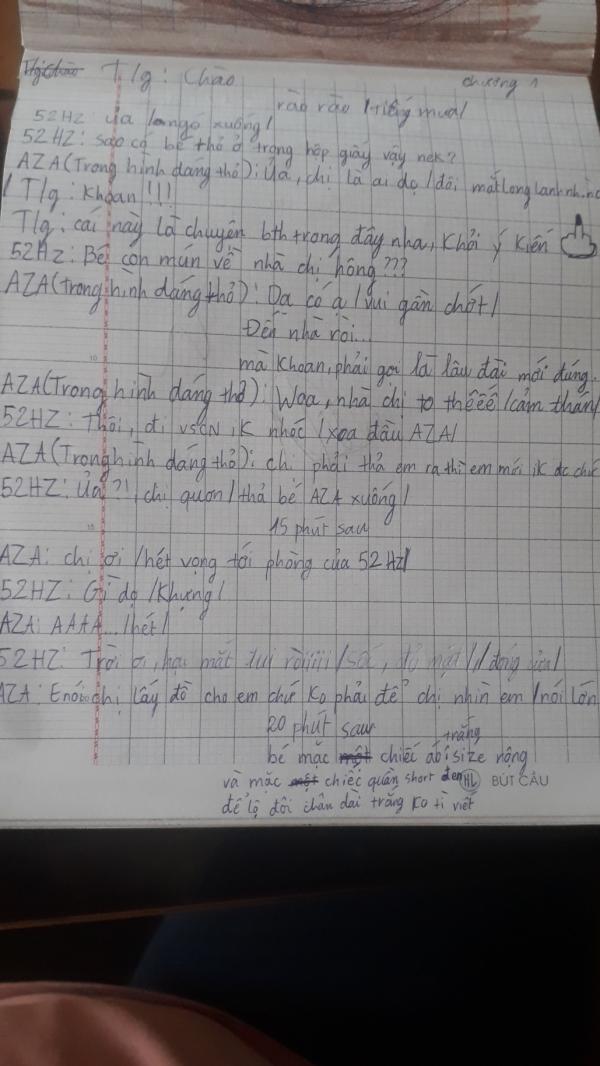 T/g: Chào
chương 1
rào rào /tiếng mưa/
52HZ: ủa /ngó xuống/
52HZ: sao có bé thỏ ở trong hộp giấy vậy nek?
AZA(Trong hình dáng thỏ): Ủa, chị là ai dọ /đôi mắt long lanh
T/g: Khoan!!!
T/g: cái này là chuyện bth trong đây nha, Khỏi ý Kiến
52Hz: Bé con mún về nhà chị hông???
AZA(trong hình dáng thỏ): Dạ có ạ /vui gần chớt/
Đến nhà rồi...
mà Khoan, phải gọi là lâu đài mới đúng.
AZA(Trong hình dáng thỏ): Woa, nhà chị to thếêế /cảm thán/
52HZ: Thôi, đi vscn ik nhóc /xoa đầu AZA/
AZA(Trong hình dáng thỏ): chị phải thả em ra thì em mới ik dc chứ
52HZ: Ủa?!, chị quơn /thả bé AZA xuống/
15 phút sau
AZA: chị ơi /hét vọng tới phòng của 52Hz/
52HZ: Gì dọ /Khựng/
AZA: AAAA.../hét/
52HZ: Trời ơi, hai mắt tui rồiiiii /sốc, đỏ mặt/ /đóng cửa/
AZA: E nói chị lấy đồ cho em chứ Ko phải để chị nhìn em /nói lớn
20 phút sau
bé mặc chiếc áo trắng size rộng
và mặc chiếc quần short đen
HL BÚT CÂU
để lộ đôi chân dài trắng Ko tì viết